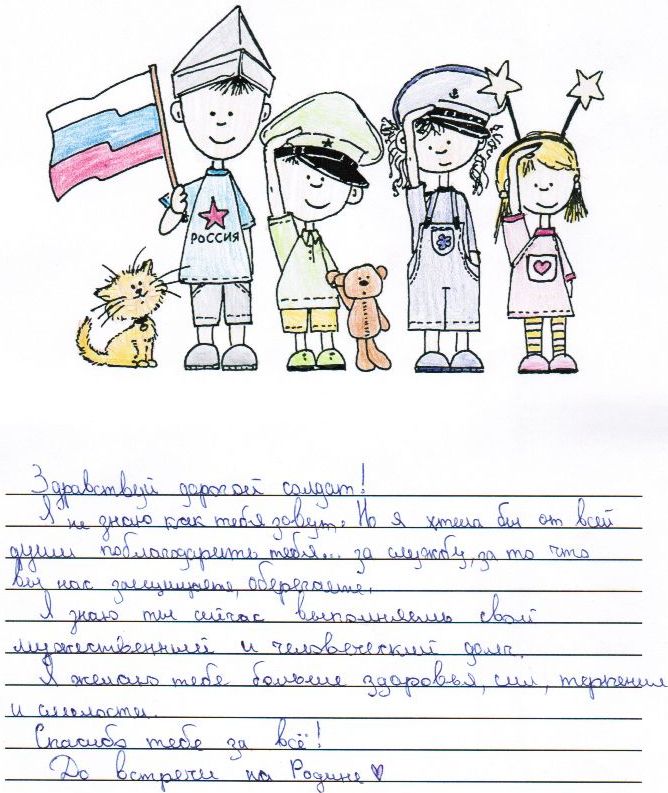 РОССИЯ
Здравствуй дорогой солдат!
Я не знаю как тебя зовут. Но я хтела бы от всей
души поблагодарить тебя... за службу, за то что
вы нас защищаете, оберегаете.
Я знаю ты сейчас выполняешь свой
мужественный и человеческий долг.
Я желаю тебе больше здоровья, сил, терпения
и смелости.
Спасибо тебе за всё!
До встречи на Родине